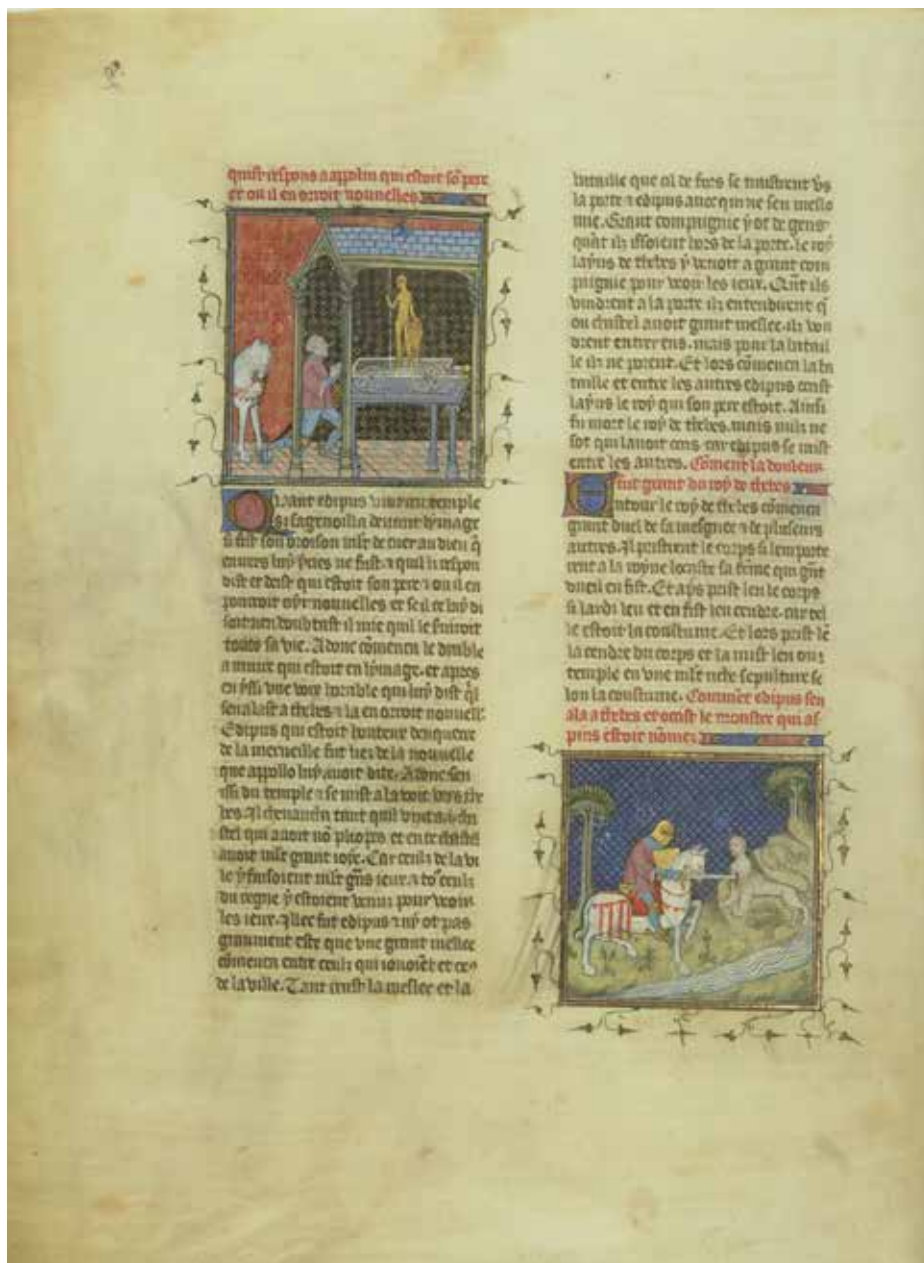 quist respons a appolin qui estoit sō pere
et ou il en orroit nouuelles
Quant edipus vint ou temple
si sagenoilla deuant lymage
si fist son oroison mlt de cuer au dieu q̄
enuers luy yries ne fust. ⁊ quil li respon
dist et deist qui estoit son pere ⁊ ou il en
pourroit oyr nouuelles et se il ce luy di
soit nen doubtast il mie quil le seruiroit
toute sa vie. Adonc cōmenca le deable
a muire qui estoit en lymage. et apres
en yssi vne voix horrible qui luy dist q̄l
sen alast a thebes ⁊ la en orroit nouuell'.
Edipus qui estoit
de la merueille fut liez de la nouuelle
que appollo luy auoit dite. Adonc sen
issi du temple ⁊ se mist a la voie vers the
bes. Il cheuaucha tant quil vint a .i. cha
stel qui auoit nō phoces et en ce chastel
auoit mlt grant ioye. Car ceulz de la vi
le y faisoient mlt grās ieux. ⁊ to9 ceulz
du regne y estoient venuz pour veoir
les ieux. Illec fut edipus ⁊ ny ot pas
gramment este que vne grant meslee
cōmenca entre ceulz qui iouoiēt et ceuz
de la ville. Tant crust la meslee et la
bataille que cil de fors se mistrent vs
la porte ⁊ edipus auec qui ne sen mesloit
mie. Grant compaignie y ot de gens
quāt ilz issoient hors de la porte. le roy
layus de thebes y venoit a grant com
paignie pour veoir les ieux. Quāt ilz
vindrent a la porte ilz entendirent q̄
ou chastel auoit grant meslee. ilz vou
drent entrer ens. mais pour la batail
le ilz ne porent. Et lors cōmenca la ba
taille et entre les autres edipus occist
layus le roy qui son pere estoit. Ainsi
fu mort le roy de thebes. mais nulz ne
sot qui lauoit occis car edipus se mist
entre les autres. Cōment la douleur
fut grant du roy de thebes
Entour le roy de thebes cōmenca
grant duel de sa mesgnee ⁊ de pluseurs
autres. Il pristrent le corps si lemporte
rent a la royne iocaste sa fēme qui grāt
dueil en fist. Et aps prist len le corps
si lardi len et en fist len cendre. car tel
le estoit la coustume. Et lors prist lē
la cendre du corps et la mist len ou
temple en vne mlt riche sepulture se
lon la coustume. Cōment edipus sen
ala a thebes et occist le monstre qui as
pins estoit nōmez